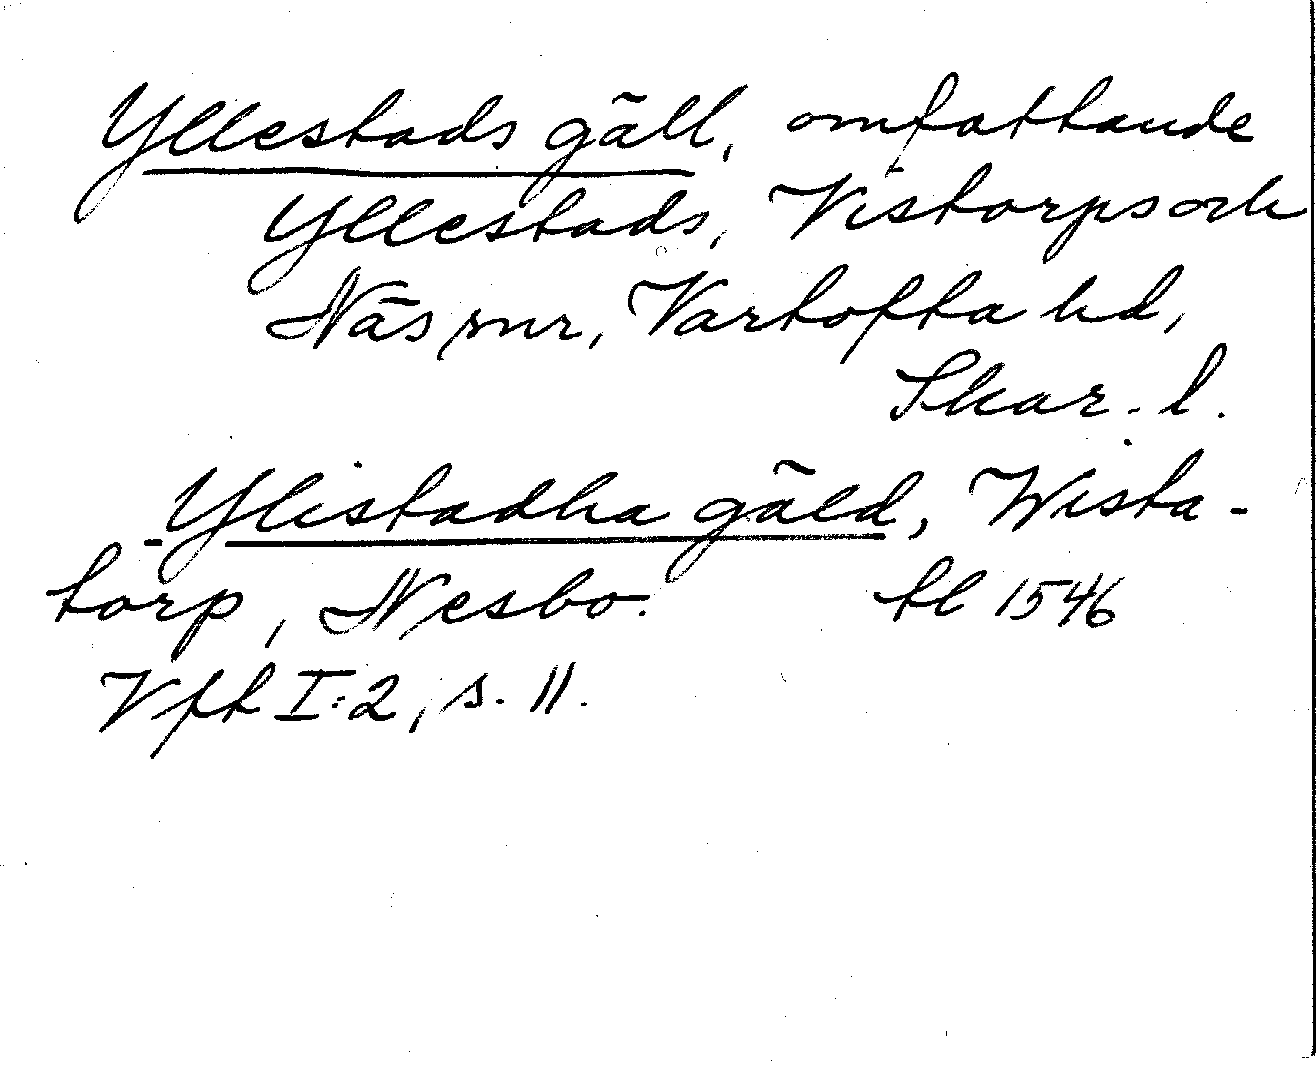 Yllestads gäll, omfattande
Yllestads, Vistorps och
Näs snr, Vartofta hd,
Skar. l.
- Ylistadha gäld, Wista-
torp, Nesbo. tl 1546
Vft I:2, s. 11.